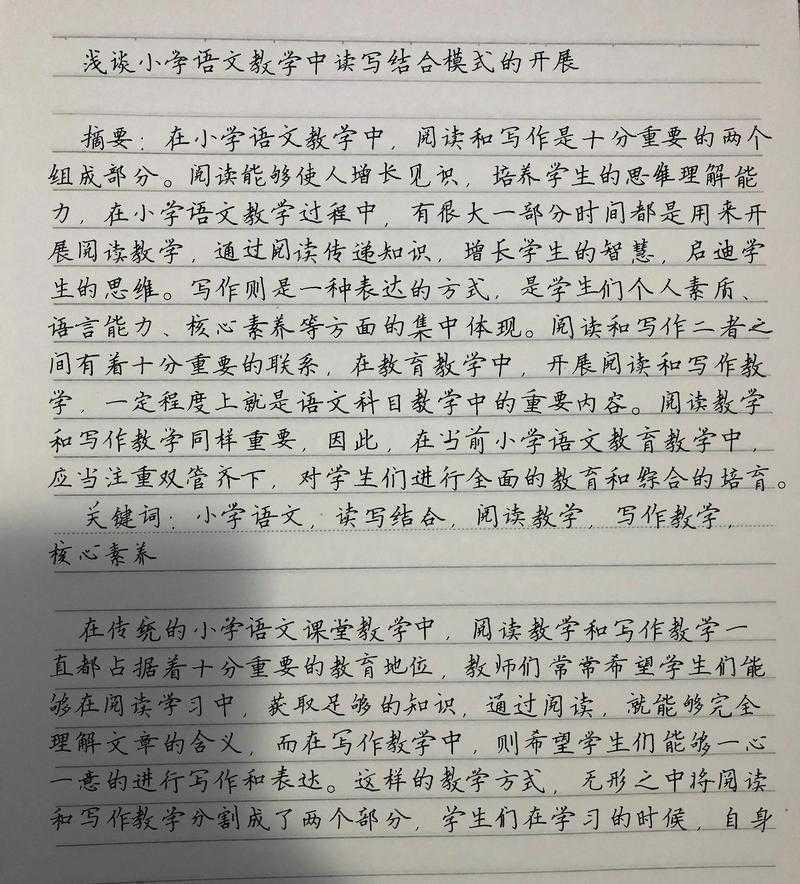 浅谈小学语文教学中读写结合模式的开展
摘要：在小学语文教学中，阅读和写作是十分重要的两个
组成部分。阅读能够使人增长见识，培养学生的思维理解能
力，在小学语文教学过程中，有很大一部分时间都是用来开
展阅读教学，通过阅读传递知识，增长学生的智慧，启迪学
生的思维。写作则是一种表达的方式，是学生们个人素质、
语言能力、核心素养等方面的集中体现。阅读和写作二者之
间有着十分重要的联系，在教育教学中，开展阅读和写作教
学，一定程度上就是语文科目教学中的重要内容。阅读教学
和写作教学同样重要，因此，在当前小学语文教育教学中，
应当注重双管齐下，对学生们进行全面的教育和综合的培育。
关键词：小学语文，读写结合，阅读教学，写作教学，
核心素养
在传统的小学语文课堂教学中，阅读教学和写作教学一
直都占据着十分重要的教育地位，教师们常常希望学生们能
够在阅读学习中，获取足够的知识，通过阅读，就能够完全
理解文章的含义，而在写作教学中，则希望学生们能够一心
一意的进行写作和表达。这样的教学方式，无形之中将阅读
和写作教学分割成了两个部分，学生们在学习的时候，自身